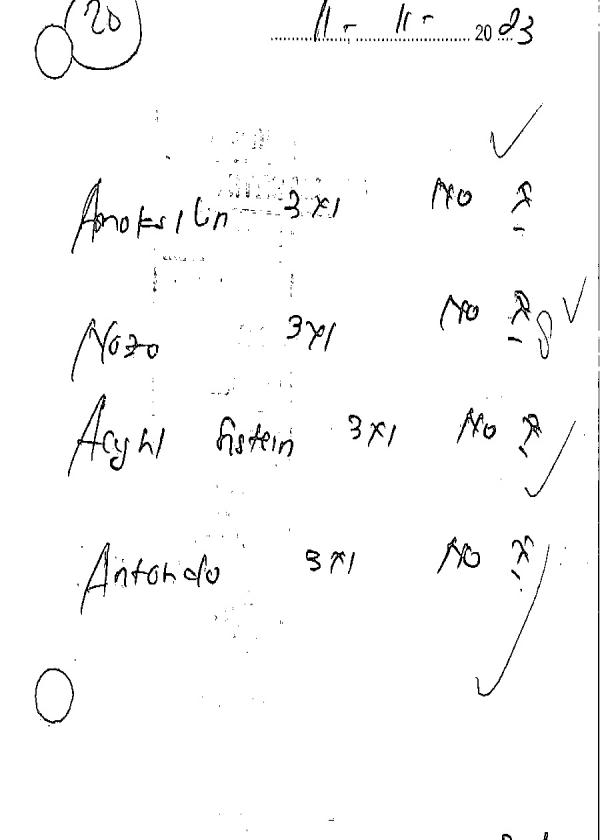 20
11 - 11 - 2023
Amoksilin 3x1 No X
Nozo 3x1 No X 8
Acyhl Sistein 3x1 No X
Antondo 3x1 No X